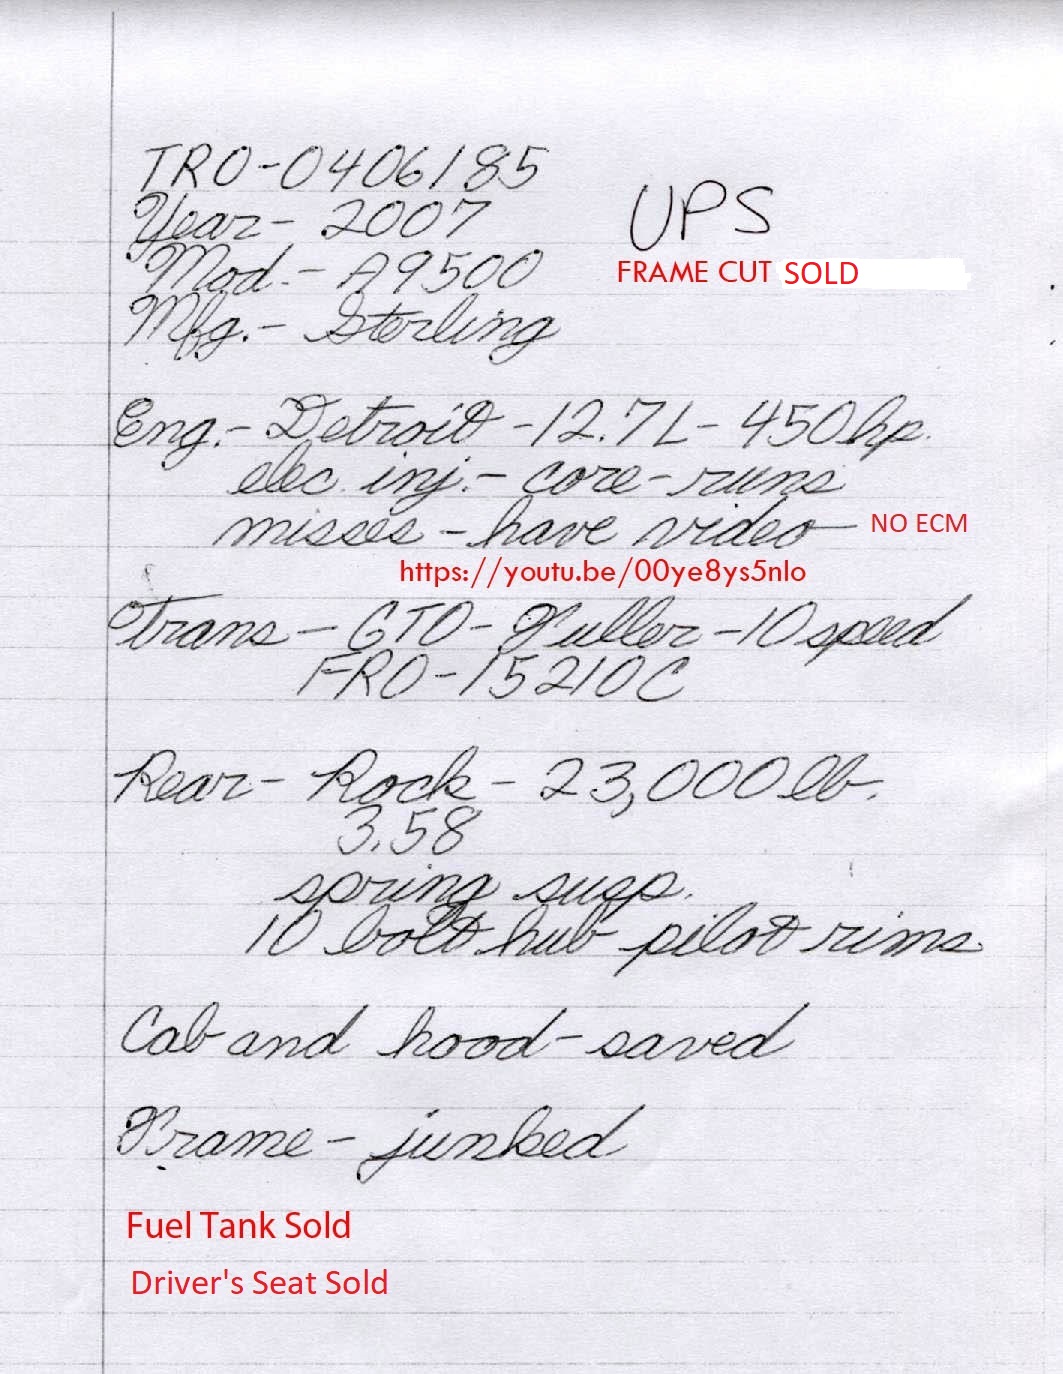 TRO-0406185
UPS
Year- 2007
Mod.- A9500
FRAME CUT SOLD
Mfg.- Sterling
Eng.- Detroit -12.7L- 450hp.
elec. inj.- core-runs
misses - have video- NO ECM
https://youtu.be/00ye8ys5nlo
Trans - GTO- Fuller -10 speed
FRO-15210C
Rear- Rock - 23,000 lb.
3.58
spring susp.
10 bolt hub pilot rims
Cab and hood- saved
Frame - junked
Fuel Tank Sold
Driver's Seat Sold